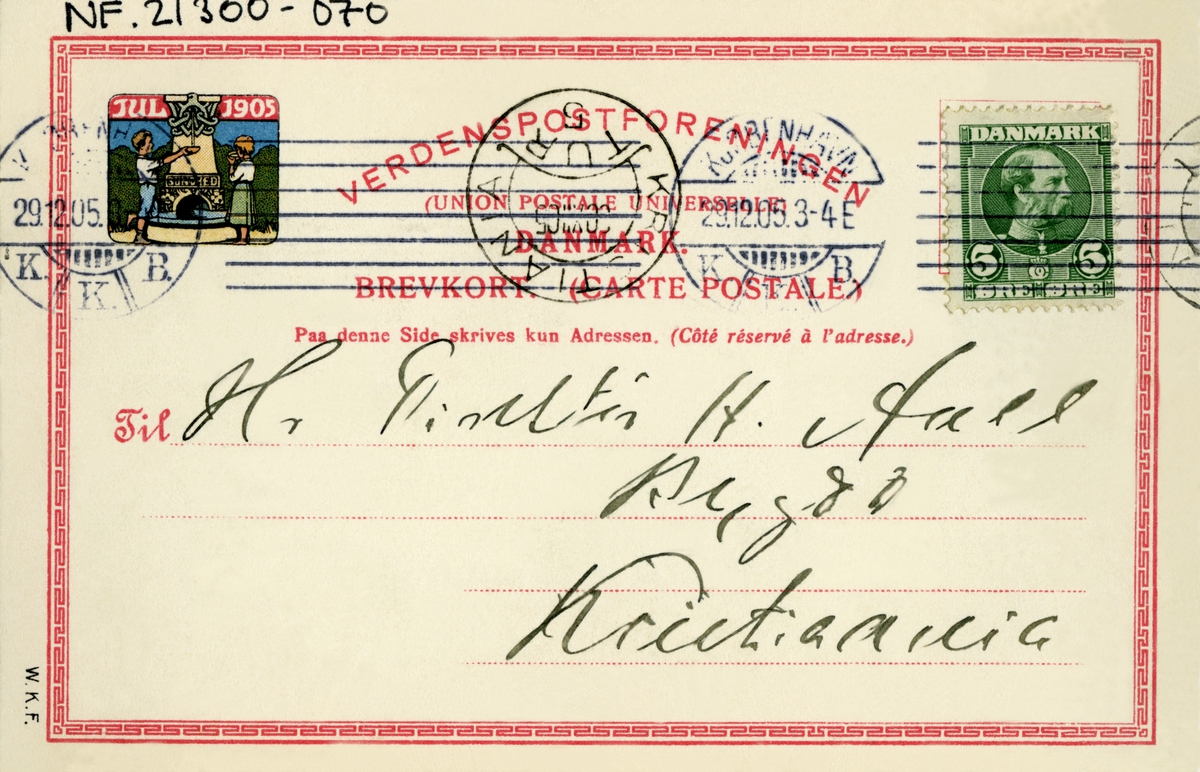 NF. 21300-070
JUL 1905
SUNDHED
VERDENSPOSTFORENINGEN
(UNION POSTALE UNIVERSELLE)
DANMARK.
BREVKORT. (CARTE POSTALE.)
KJØBENHAVN
29.12.05.
K. K. B.
KRISTIANIA
TUR 5
KJØBENHAVN
29.12.05. 3-4 E
K. K. B.
DANMARK
5 5
ØRE ØRE
Paa denne Side skrives kun Adressen. (Côté réservé à l'adresse.)
Til Hr Direktör H. Aall
Bygdö
Kristiania
W. K. F.